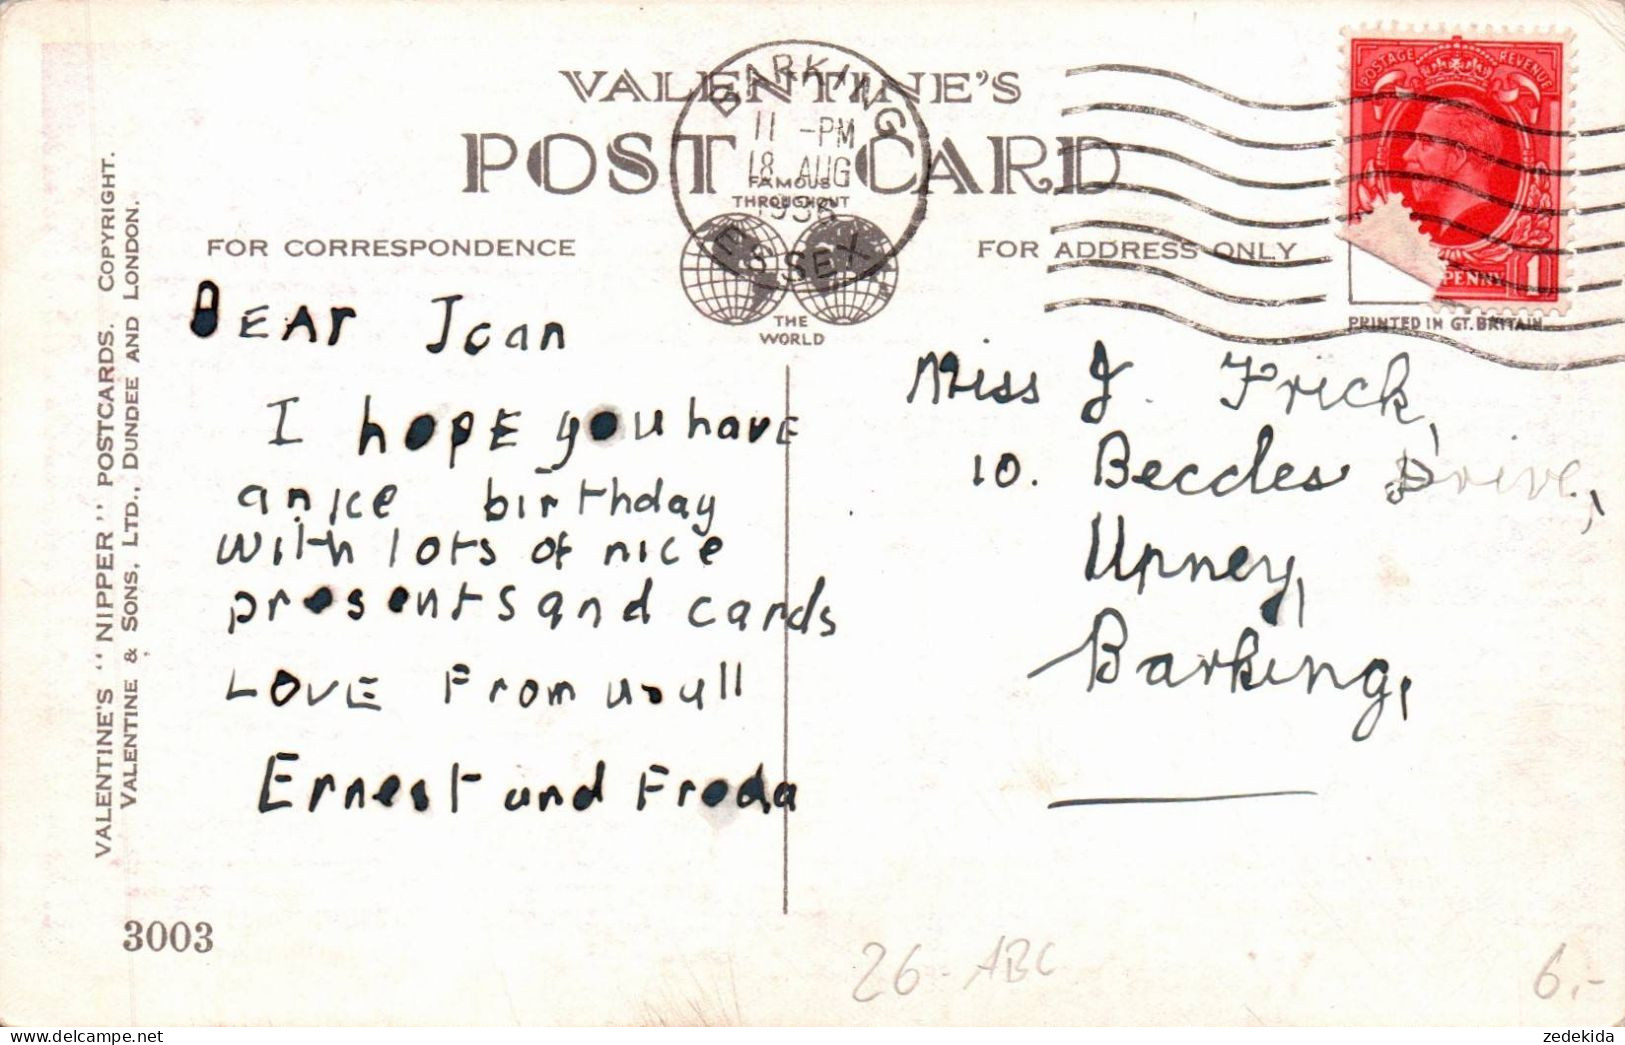 VALENTINE'S
POST CARD
FAMOUS
THROUGHOUT
THE
WORLD
BARKING
11 - PM
18 AUG
1936
ESSEX
POSTAGE REVENUE
PENNY 1
PRINTED IN GT. BRITAIN
FOR CORRESPONDENCE
FOR ADDRESS ONLY
VALENTINE'S "NIPPER" POSTCARDS. COPYRIGHT.
VALENTINE & SONS, LTD., DUNDEE AND LONDON.
DEAr Joan
I hopE you havE
a nice birthday
with lots of nice
presents and cards
LOVE From us all
Ernest and Freda
Miss J. Frick,
10. Beccles Drive,
Upney,
Barking,
3003
26 - ABC
6.-
zedekida